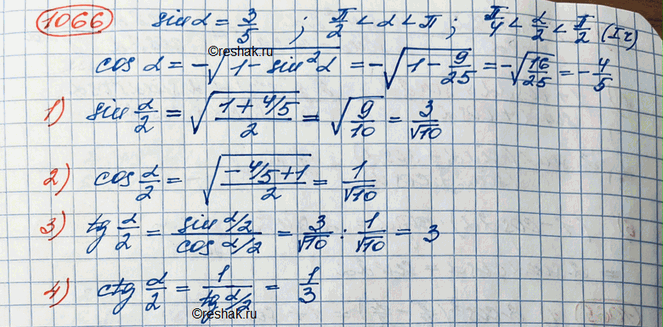 1066 sin α = 3/5 ; π/2 < α < π ; π/4 < α/2 < π/2 (I ч)
©reshak.ru
cos α = -√(1 - sin²α) = -√(1 - 9/25) = -√(16/25) = -4/5
1) sin α/2 = √((1 + 4/5)/2) = √(9/10) = 3/√10
2) cos α/2 = √((-4/5 + 1)/2) = 1/√10
3) tg α/2 = (sin α/2)/(cos α/2) = 3/√10 : 1/√10 = 3
4) ctg α/2 = 1/(tg α/2) = 1/3
©reshak.ru